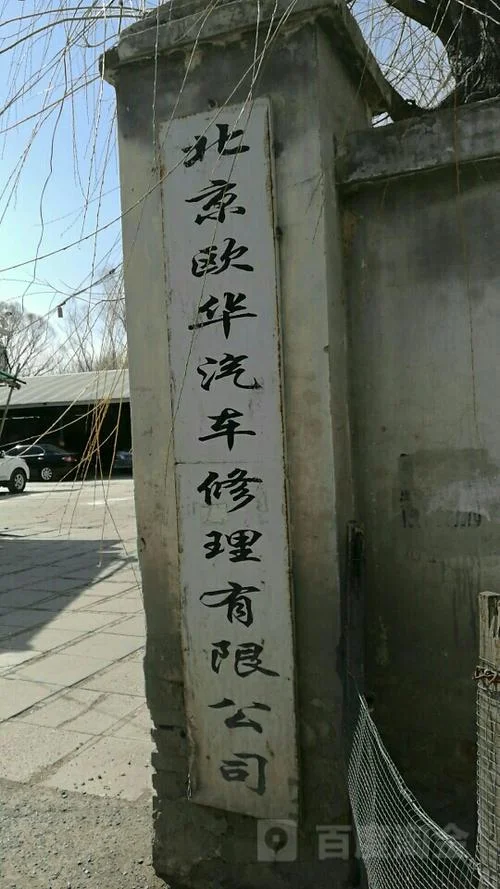 北京欧华汽车修理有限公司